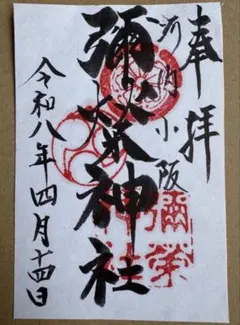 奉拝
河内小阪
彌榮神社
彌榮
神社
令和八年四月十四日